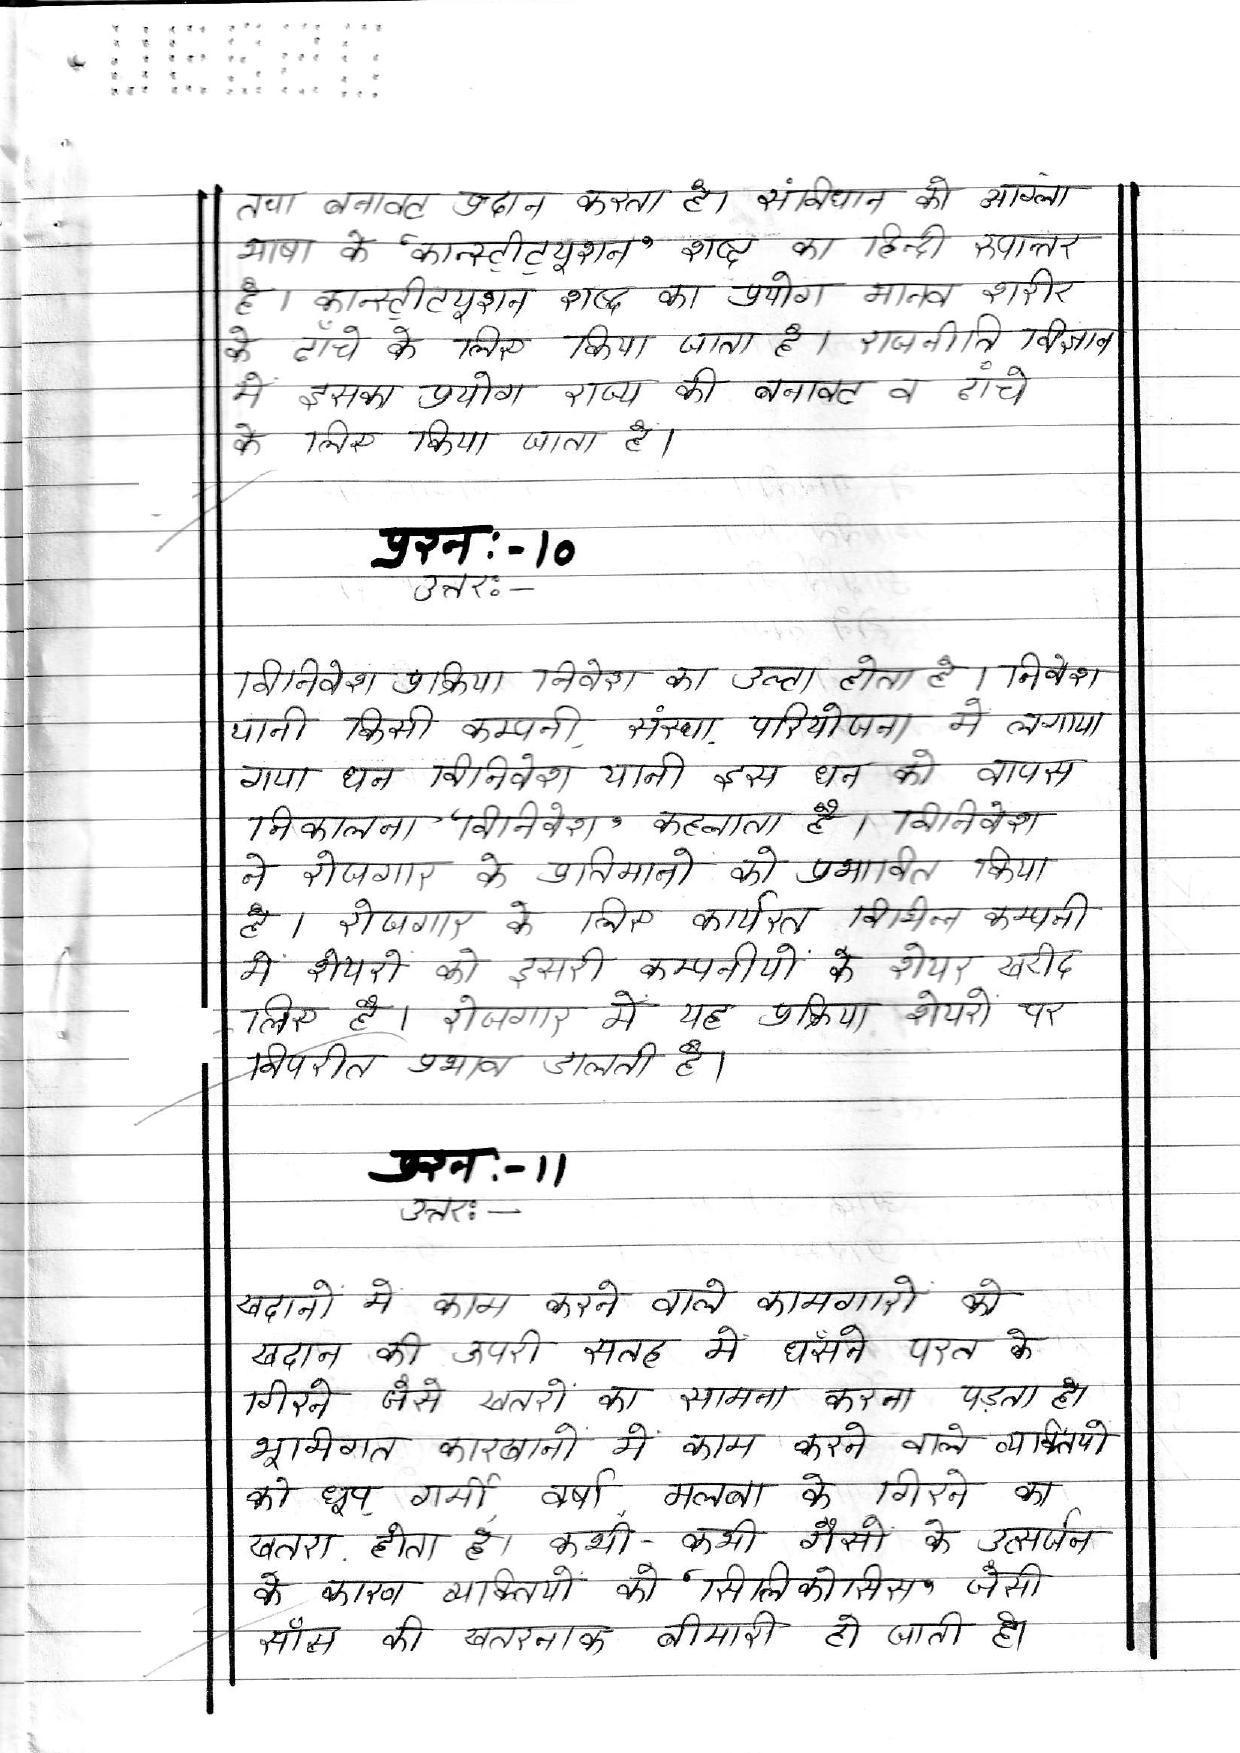 तथा बनावट प्रदान करता है। संविधान को आंग्ल
भाषा के 'कान्स्टीट्यूशन' शब्द का हिन्दी रुपान्तर
है। कान्स्टीट्यूशन शब्द का प्रयोग मानव शरीर
के ढाँचे के लिए किया जाता है। राजनीति विज्ञान
में इसका प्रयोग राज्य की बनावट व ढाँचे
के लिए किया जाता है।
प्रश्न :- 10
उत्तर :-
विनिवेश प्रक्रिया निवेश का उल्टा होता है। निवेश
यानी किसी कम्पनी, संस्था, परियोजना में लगाया
गया धन विनिवेश यानी इस धन को वापस
निकालना 'विनिवेश' कहलाता है। विनिवेश
ने रोजगार के प्रतिमानों को प्रभावित किया
है। रोजगार के लिए कार्यरत विभिन्न कम्पनी
में शेयरों को दूसरी कम्पनीयों के शेयर खरीद
लिए है। रोजगार में यह प्रक्रिया शेयरों पर
विपरीत प्रभाव डालती है।
प्रश्न :- 11
उत्तर :-
खदानों में काम करने वाले कामगारों को
खदान की ऊपरी सतह में धँसने परत के
गिरने जैसे खतरों का सामना करना पड़ता है।
भूमिगत कारखानों में काम करने वाले व्यक्तियों
को धूप, गर्मी, वर्षा, मलबा के गिरने का
खतरा होता है। कभी-कभी गैसों के उत्सर्जन
के कारण व्यक्तियों को 'सिलिकोसिस' जैसी
साँस की खतरनाक बीमारी हो जाती है।